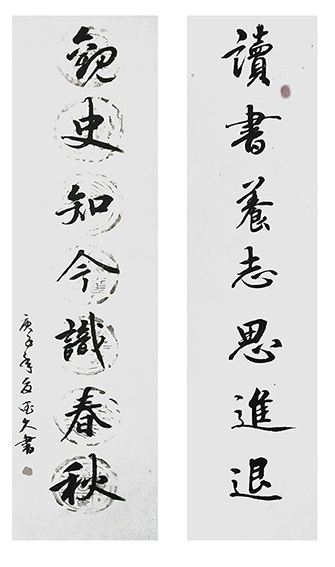 讀書養志思進退
觀史知今識春秋
庚子年
書